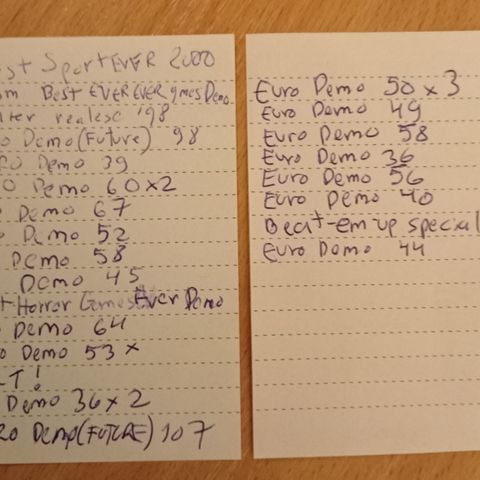 st Sport EVER 2000
m Best EVER EVER gmes Demo
ter realese '98
o Demo (Future) 98
RO Demo 39
O Demo 60x2
o Demo 67
o Demo 52
Demo 58
Demo 45
t Horror Games Ever Demo
o Demo 64
o Demo 53 x
LT!
Demo 36x2
RO Demo (FUTURE) 107
Euro Demo 50 x 3
Euro Demo 49
Euro Demo 58
Euro Demo 36
Euro Demo 56
Euro Demo 40
Beat-em-up special
Euro Demo 44